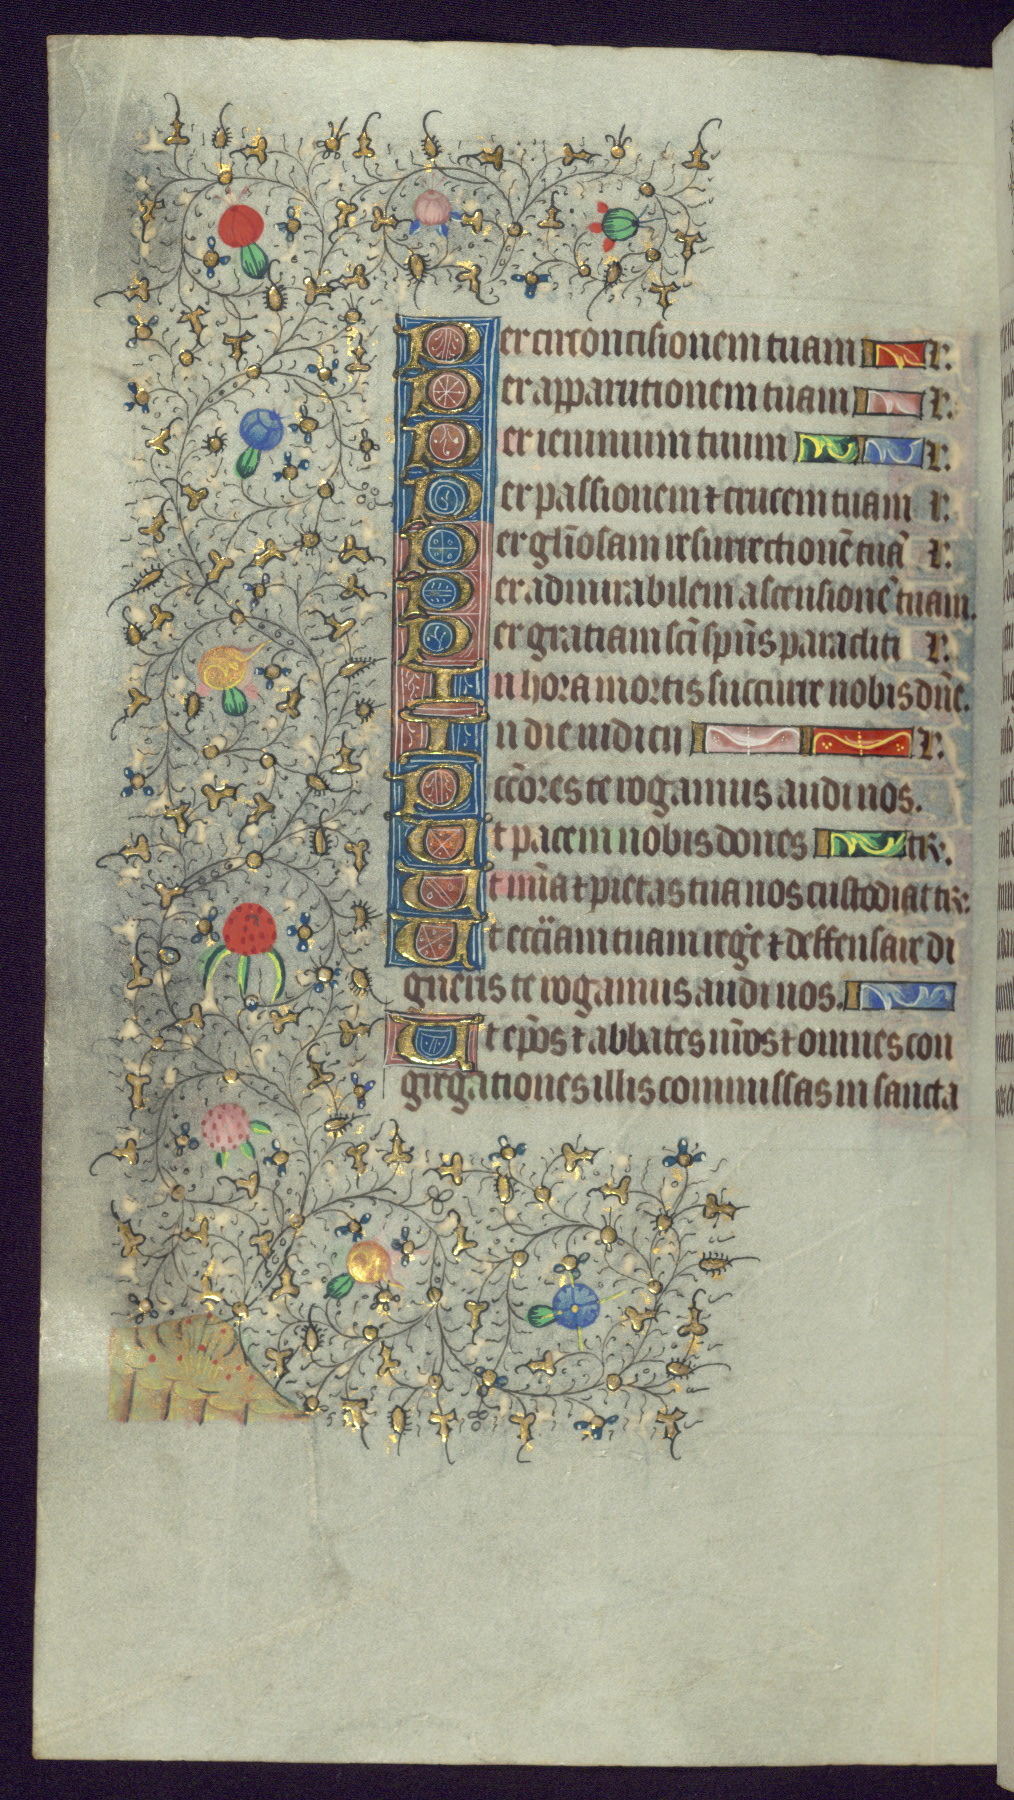 Per circoncisionem tuam r.
Per apparutionem tuam r.
Per ieiunium tuum r.
Per passionem ⁊ crucem tuam r.
Per gl̄iosam resurrectionē tuā r.
Per admirabilem ascensionē tuam.
Per gratiam sc̄i sp̄us paracliti r.
In hora mortis succurre nobis dn̄e.
In die iudicii r.
Peccōres te rogamus audi nos.
Ut pacem nobis dones te r.
Ut mīa ⁊ pietas tua nos custodiat te r.
Ut eccl̄iam tuam reḡe ⁊ deffensare di
gneris te rogamus audi nos.
Ut ep̄os ⁊ abbates nr̄os ⁊ omnes con
gregationes illis commissas in sancta